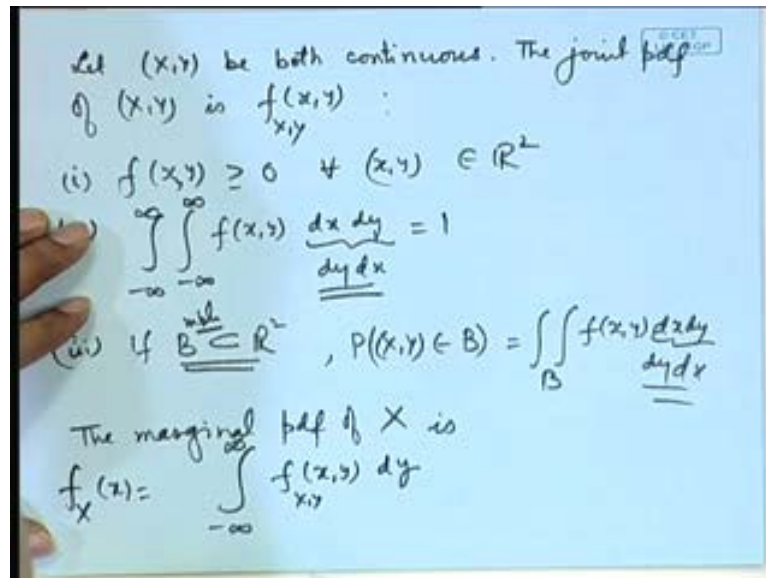 Let (X,Y) be both continuous. The joint pdf
of (X,Y) is f_{X,Y}(x,y) :
(i) f(x,y) ≥ 0 ∀ (x,y) ∈ ℝ²
∫_{-∞}^{∞} ∫_{-∞}^{∞} f(x,y) dx dy = 1
dy dx
(iii) If B ⊂ ℝ² , P((X,Y) ∈ B) = ∫∫_B f(x,y) dx dy
dy dx
The marginal pdf of X is
f_X(x) = ∫_{-∞}^{∞} f_{X,Y}(x,y) dy